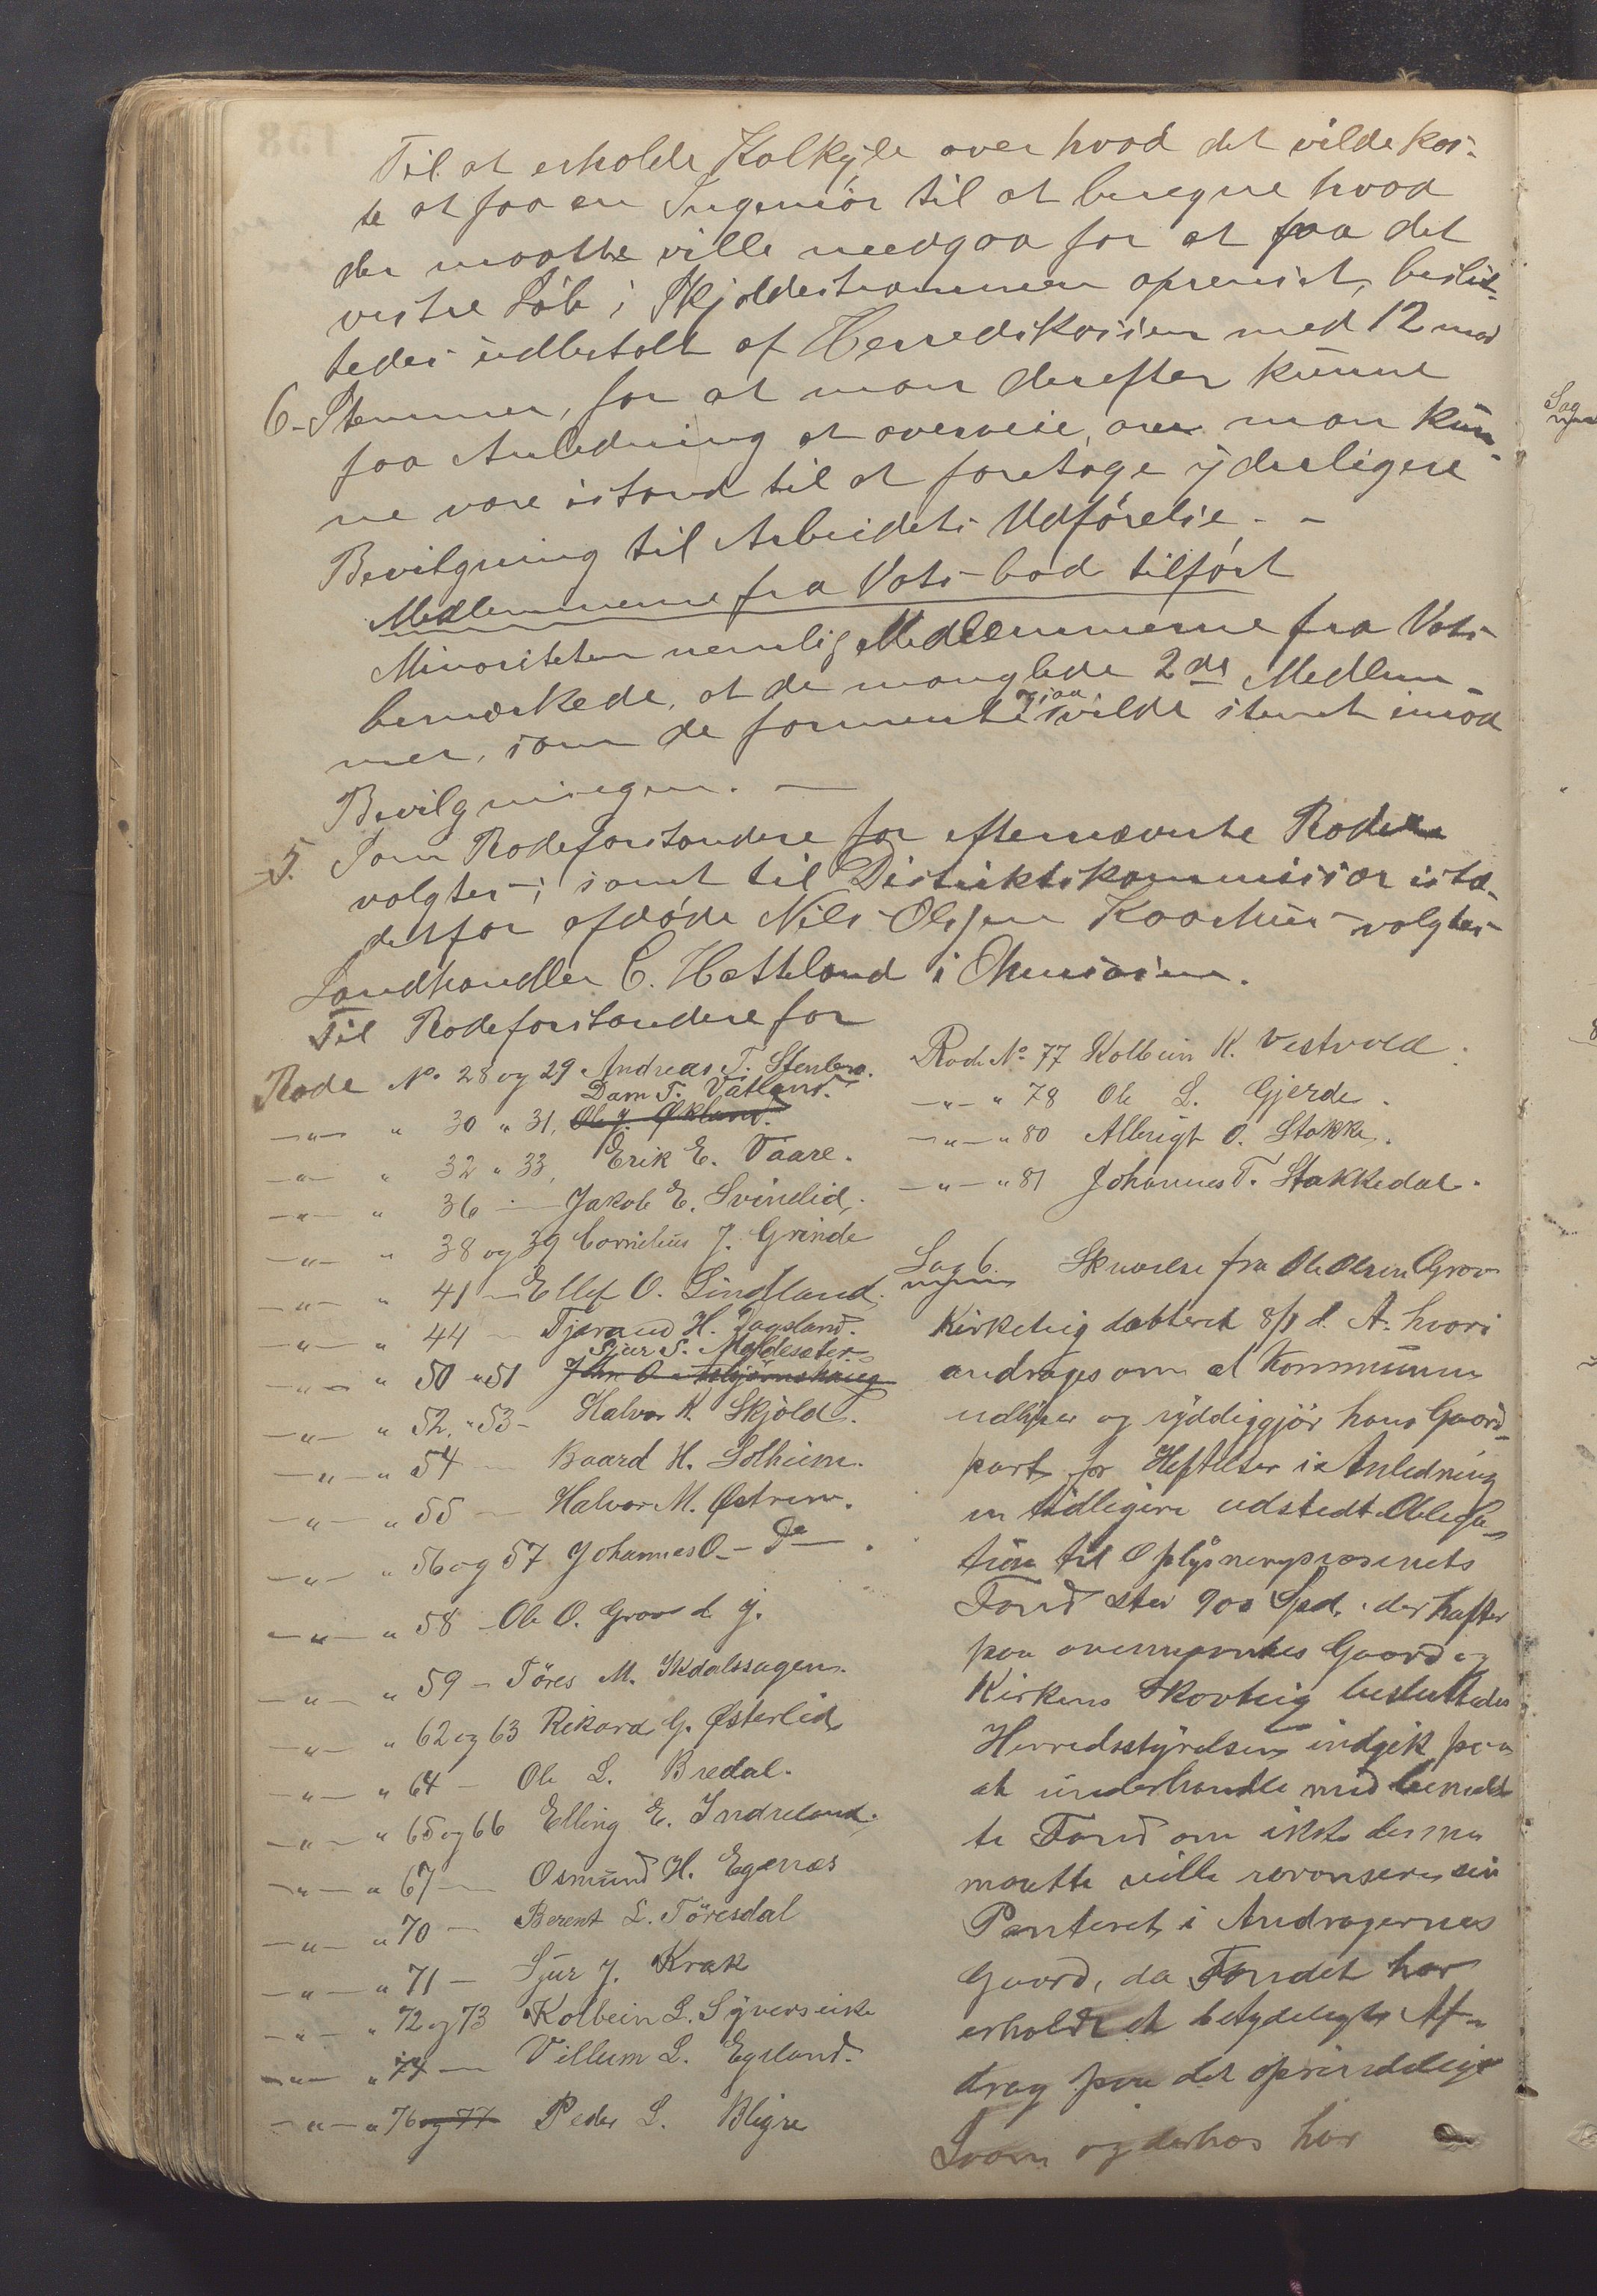 Til at erholde Kalkyle over hvad det vilde kos-
te at faa en Ingeniör til at beregne hvad
der maatte ville medgaa for at faa det
vestre Löb i Skjoldestrammen oprenset, beslut-
tedes udbetalt af Herredskassen med 12 mod
6 - Stemmer, for at man derefter kunne
faa Anledning at overveie, om man kun-
ne være istand til at foretage yderligere
Bevilgning til Arbeidets Udförelse. -
Medlemmerne fra Vats bad tilfört
Minoriteten nemlig Medlemmerne fra Vats
bemærkede, at de manglede 2de Medlem-
mer, som de formente ogsaa vilde stemt imod
Bevilgningen. —
5. Som Rodeforstandere for efternævnte Roder
valgtes; samt til Distriktskommissær iste-
detfor afdöde Nils Olsen Kaarhus valgtes
Landhandler C. Hatteland i Ølensjøen.
Til Rodeforstandere for
Rode No 28 og 29 Andreas T. Stenberg.
Dam T. Vatland.
—"— " 30 " 31, Ole J. Økland.
—"— " 32 " 33, Erik E. Vaare.
—"— " 36 — Jakob E. Svindlid.
—"— " 38 og 39 Cornelius J. Grinde
—"— " 41 — Ellef O. Lindtland.
—"— " 44 — Tjeraud H. Dagsland.
Sjur S. Moldesæter
—"— " 50 " 51 John O. Asbjörnshaug
—"— " 52 " 53 - Halvor K. Skjold.
—"— " 54 — Baard H. Solheim.
—"— " 55 — Halvor M. Østrem.
—"— " 56 og 57 Johannes O. — Do — .
—"— " 58 - Ole O. Grov d. y.
—"— " 59 - Töres M. Isdalssagen.
—"— " 62 og 63 Rikard G. Østerlid
—"— " 64 - Ole L. Bredal.
—"— " 65 og 66 Elling E. Indreland.
—"— " 67 — Osmund H. Egenæs
—"— " 70 — Berent L. Töresdal
—"— " 71 — Sjur J. Krak
—"— " 72 og 73 Kolbein L. Syverseike
—"— " 74 — Villum L. Egeland.
—"— " 76 og 77 Peder L. Bligre
Rode No 77 Kolbein K. Vestvold.
—"— " 78 Ole L. Gjerde.
—"— " 80 Albrigt O. Stakke.
—"— " 81 Johannes T. Stakkedal.
Sag 6. Skrivelse fra Ole Olsen Grov
Kirketeig datteret 8/1 d. A. hvori
andrages om at Kommunen
udløser og ryddiggjör hans Gaard-
part for Heftelser i Anledning
en tidligere udstedt Obliga-
tion til Oplysningsvæsenets
Fond stor 900 Spd. der hefter
paa ovennævntes Gaard og
Kirkens Skovteig besluttedes
Herredsstyrelsen indgik paa
at underhandle med bemeld-
te Fond om ikke denne
maatte ville
Panteret i Andragernes
Gaard, da Fondet har
erholdt et betydeligt Af-
drag paa det oprindelige
Laan og derhos har
Sag